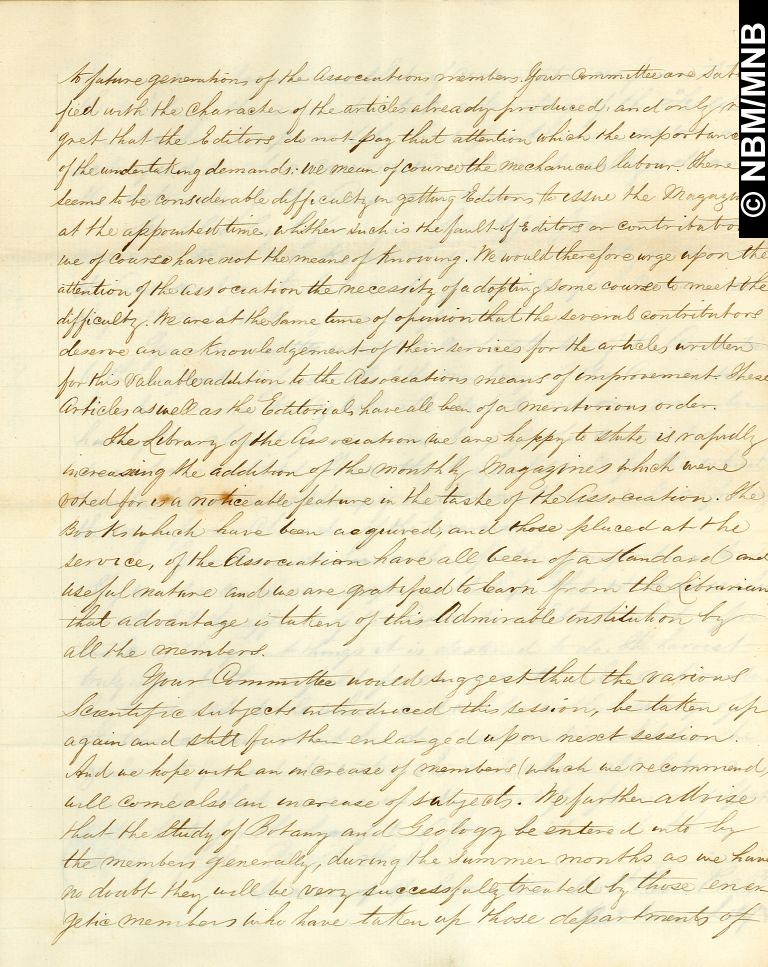 to future generations of the Associations members. Your Committee are satis
fied with the character of the articles already produced, and only re
gret that the Editors do not pay that attention which the importance
of the undertaking demands: we mean of course the mechanical labour. There
seems to be considerable difficulty in getting Editors to issue the Magazine
at the appointed time, whither such is the fault of Editors or contributors
we of course have not the means of knowing. We would therefore urge upon the
attention of the Association the necessity of adopting some course to meet the
difficulty. We are at the same time of opinion that the several contributors
deserve an acknowledgement of their services for the articles written
for this valuable addition to the Associations means of improvement. These
Articles as well as the Editorials have all been of a meritorious order.
The Library of the Association we are happy to state is rapidly
increasing the addition of the monthly Magazines which were
voted for is a noticeable feature in the taste of the Association. The
Books which have been acquired, and those placed at the
service, of the Association have all been of a standard and
useful nature and we are gratified to learn from the Librarian
that advantage is taken of this Admirable institution by
all the members.
Your Committee would suggest that the various
Scientific subjects introduced this session, be taken up
again and still further enlarged upon next session.
And we hope with an increase of members (which we recommend)
will come also an increase of subjects. We further advise
that the Study of Botany and Geology be entered into by
the members generally, during the summer months as we have
no doubt they will be very successfully treated by those ener
getic members who have taken up those departments of
© NBM/MNB